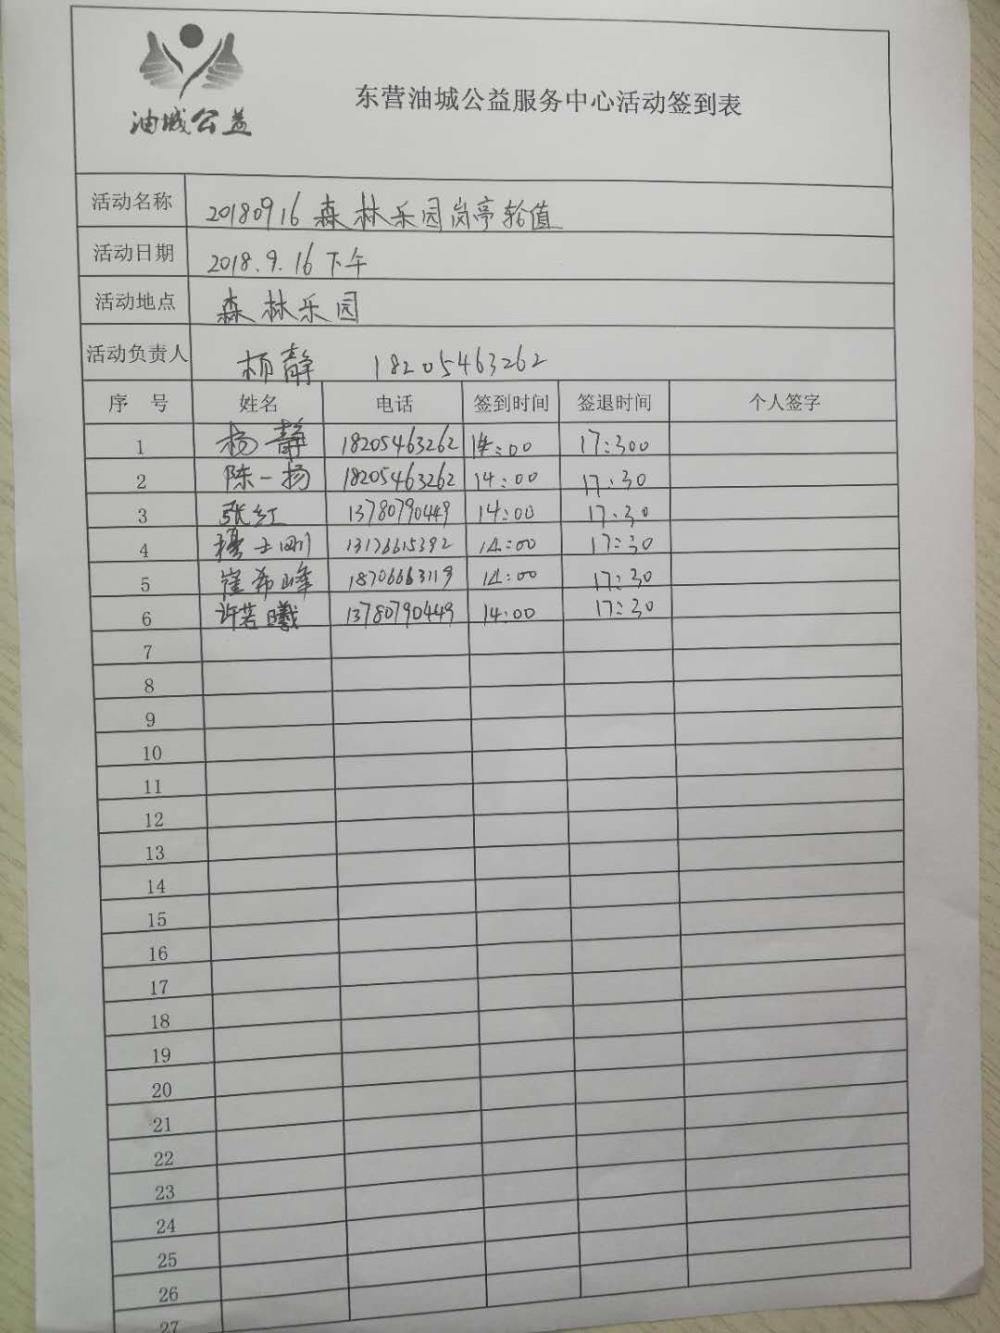 油城公益
东营油城公益服务中心活动签到表
活动名称 20180916 森林乐园岗亭轮值
活动日期 2018.9.16 下午
活动地点 森林乐园
活动负责人 杨静 18205463262
序 号 姓名 电话 签到时间 签退时间 个人签字
1 杨静 18205463262 14:00 17:300
2 陈一扬 18205463262 14:00 17:30
3 张红 13780790449 14:00 17:30
4 穆士刚 13176615392 14:00 17:30
5 崔希峰 18706663119 14:00 17:30
6 许若曦 13780790449 14:00 17:30
7
8
9
10
11
12
13
14
15
16
17
18
19
20
21
22
23
24
25
26
27